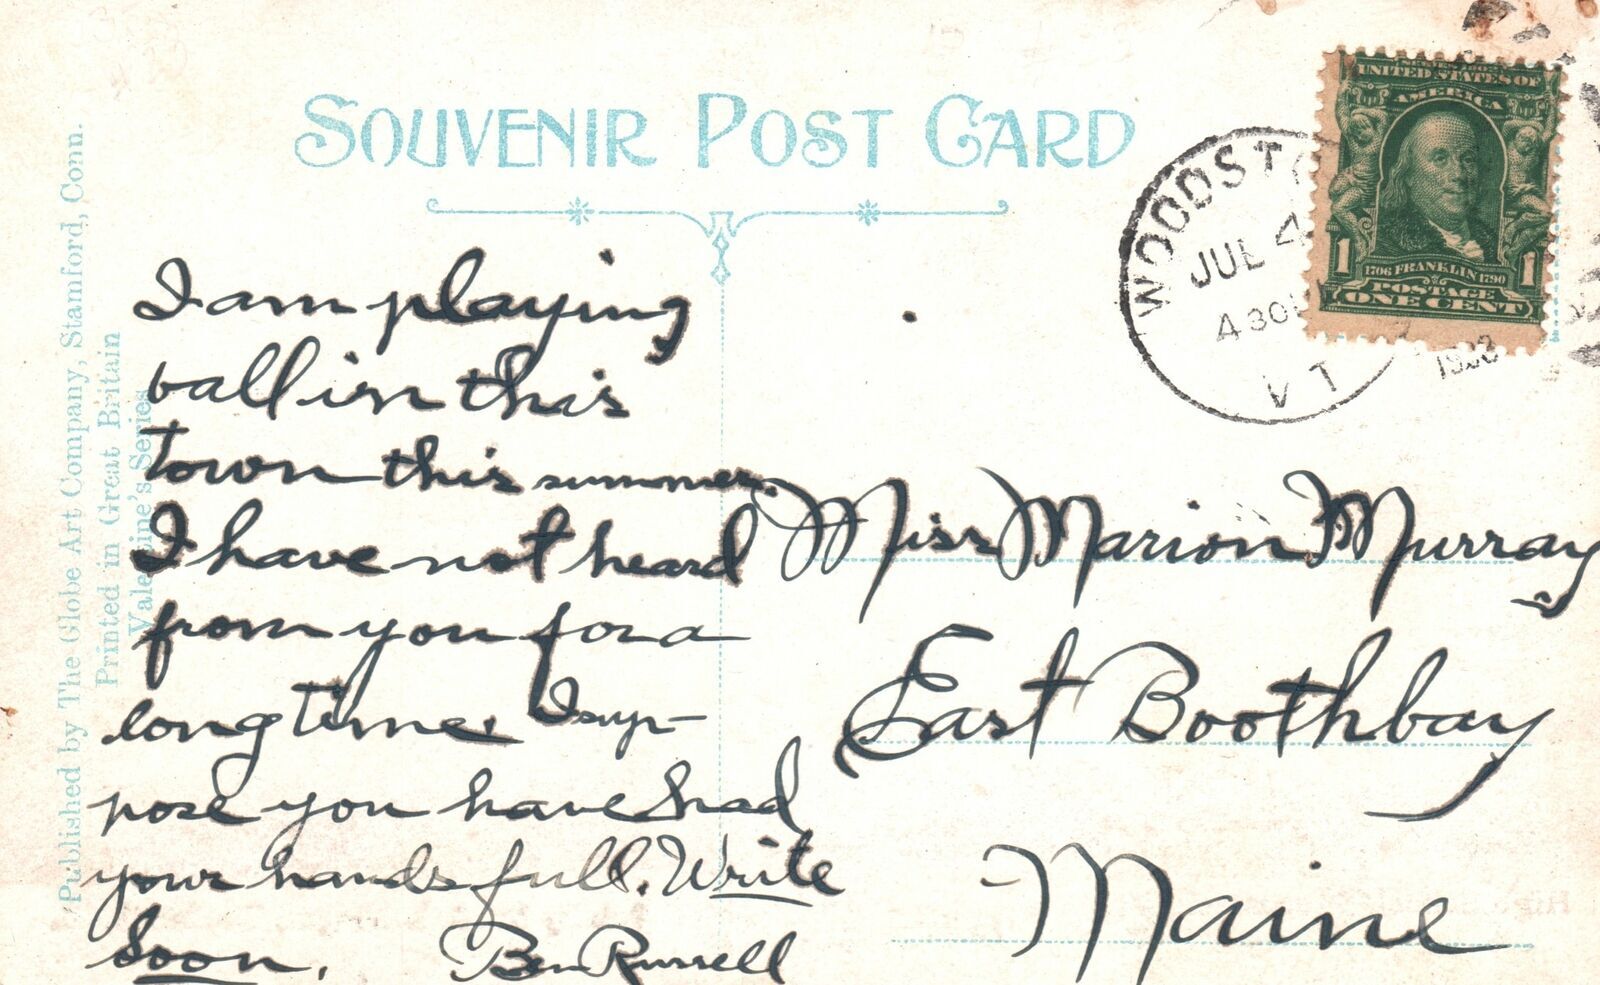 SOUVENIR POST CARD
Published by The Globe Art Company, Stamford, Conn.
Printed in Great Britain
Valentine's Series
I am playing
ball in this
town this summer.
I have not heard
from you for a
long time. I sup-
pose you have had
your hands full. Write
Soon. Ben Russell
WOODST
JUL 4
4 30
VT
UNITED STATES OF
AMERICA
1 1
1706 FRANKLIN 1790
POSTAGE
ONE CENT
Miss Marion Murray
East Boothbay
Maine